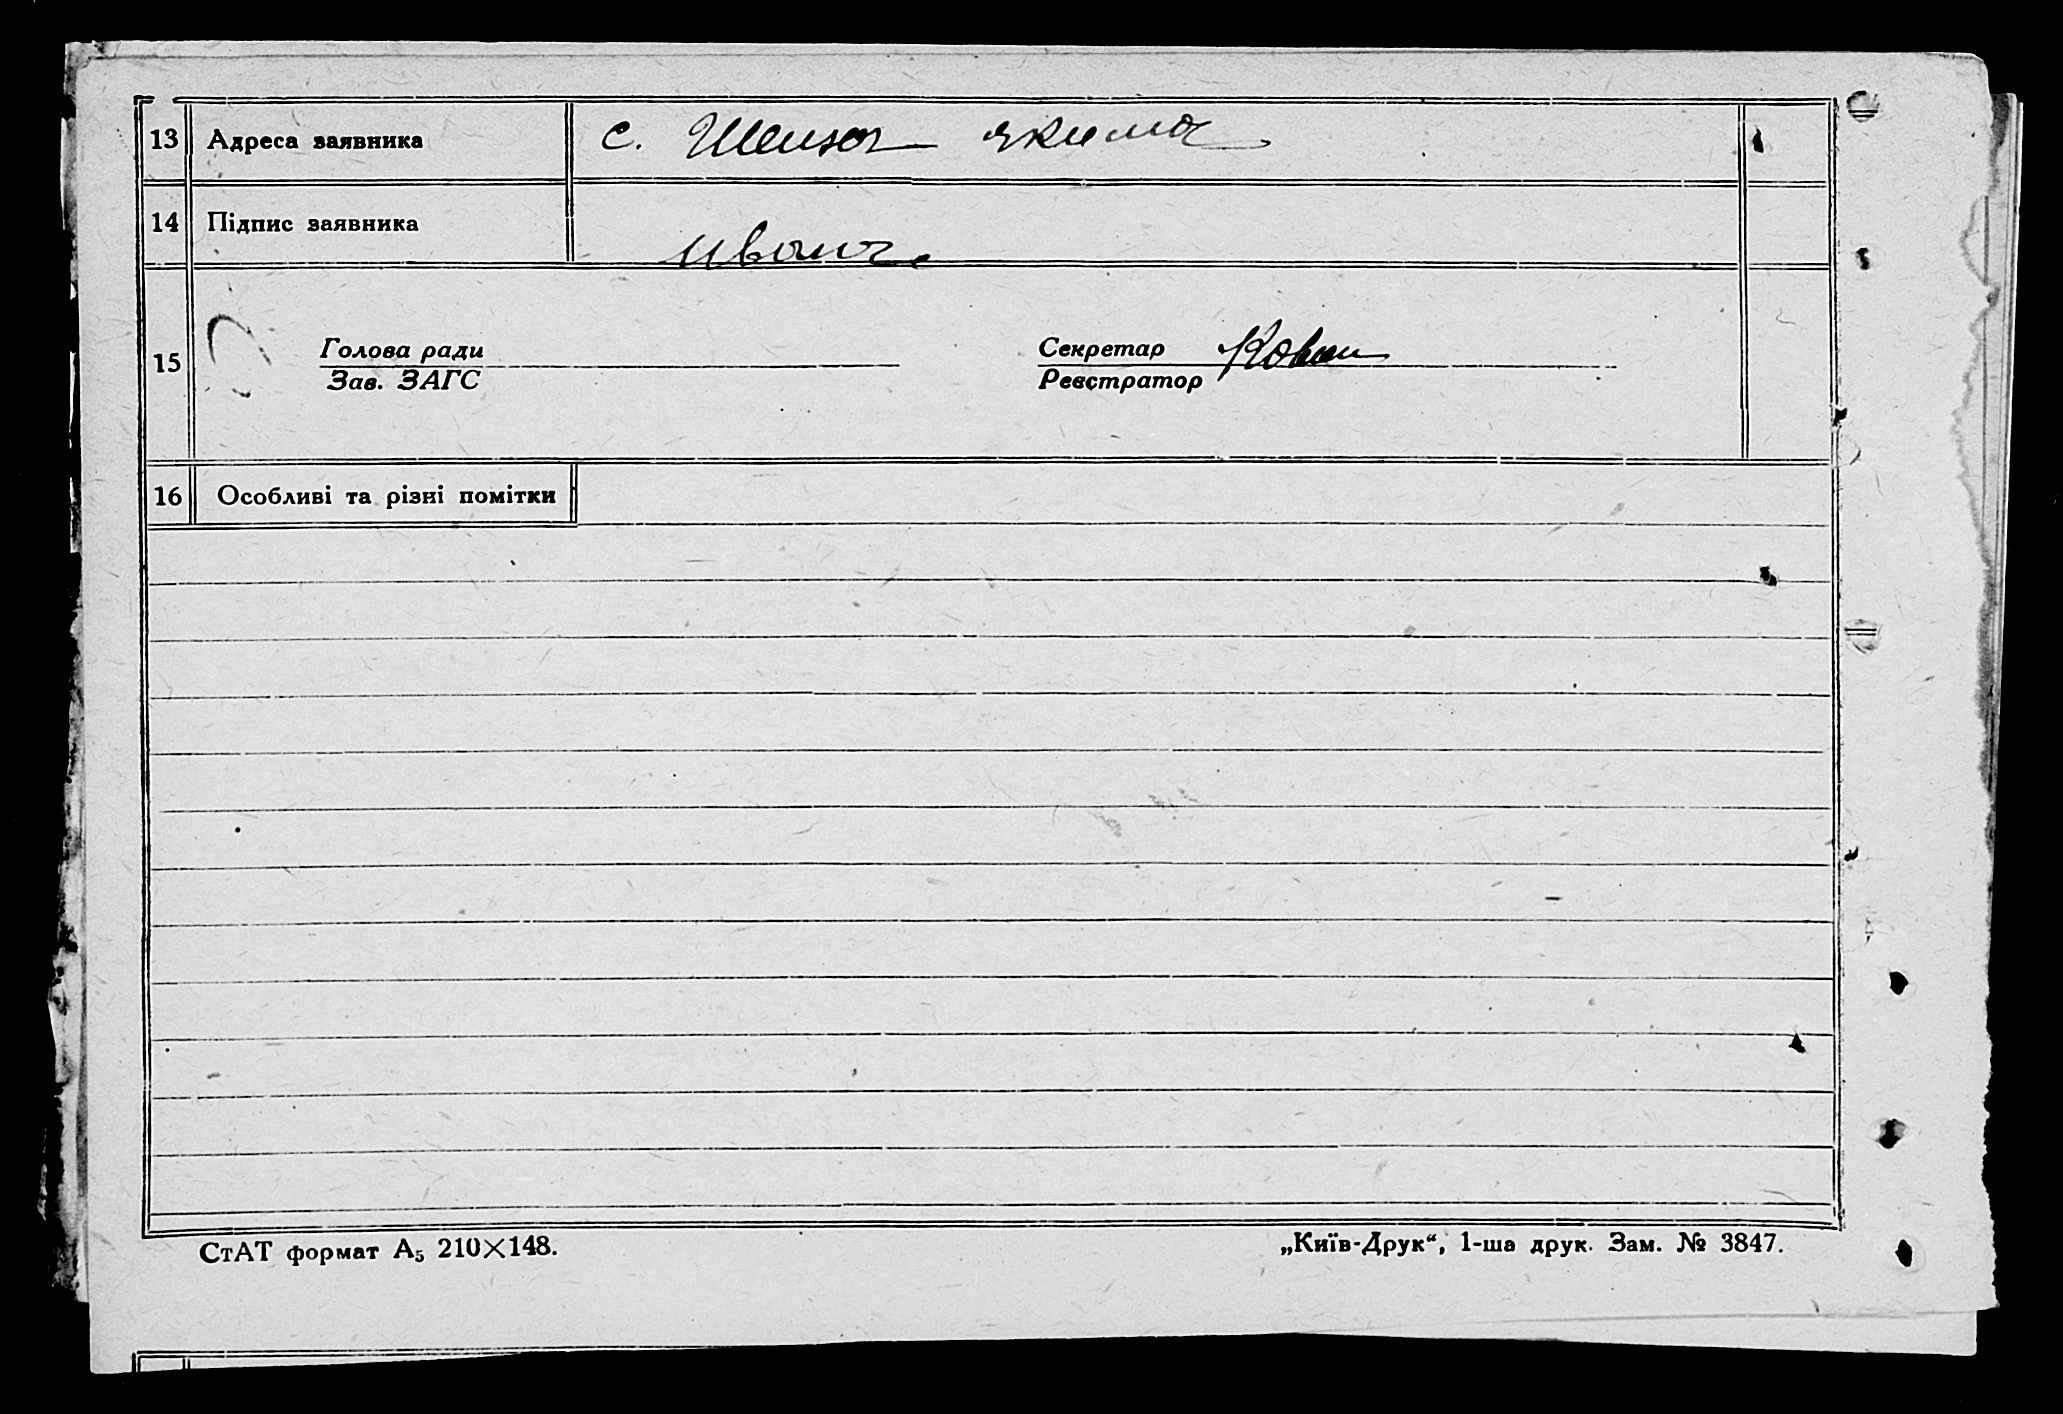 13 Адреса заявника с. Шейзо
14 Підпис заявника
15 Голова ради Секретар
Зав. ЗАГС Реєстратор
16 Особливі та різні помітки
СтАТ формат А₅ 210×148. „Київ-Друк“, 1-ша друк. Зам. № 3847.